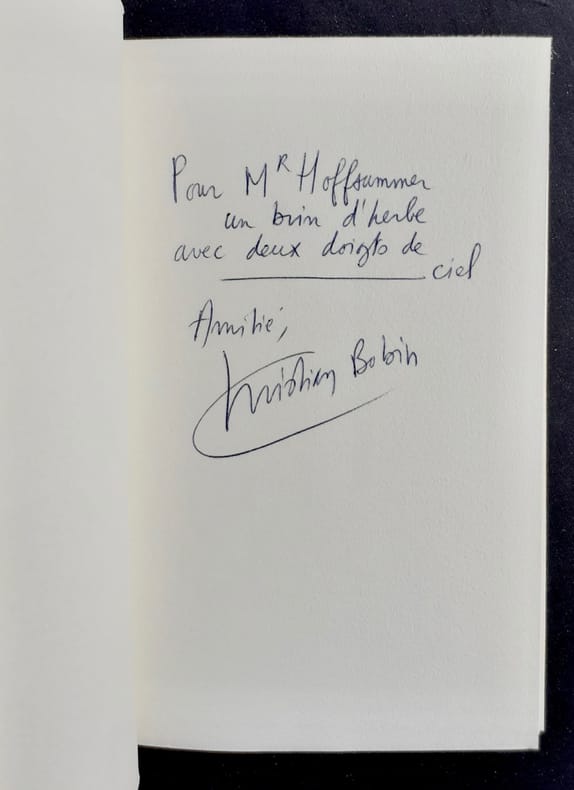 Pour MR Hoffsummer
un brin d'herbe
avec deux doigts de
ciel
Amitié,
Christian Bobin